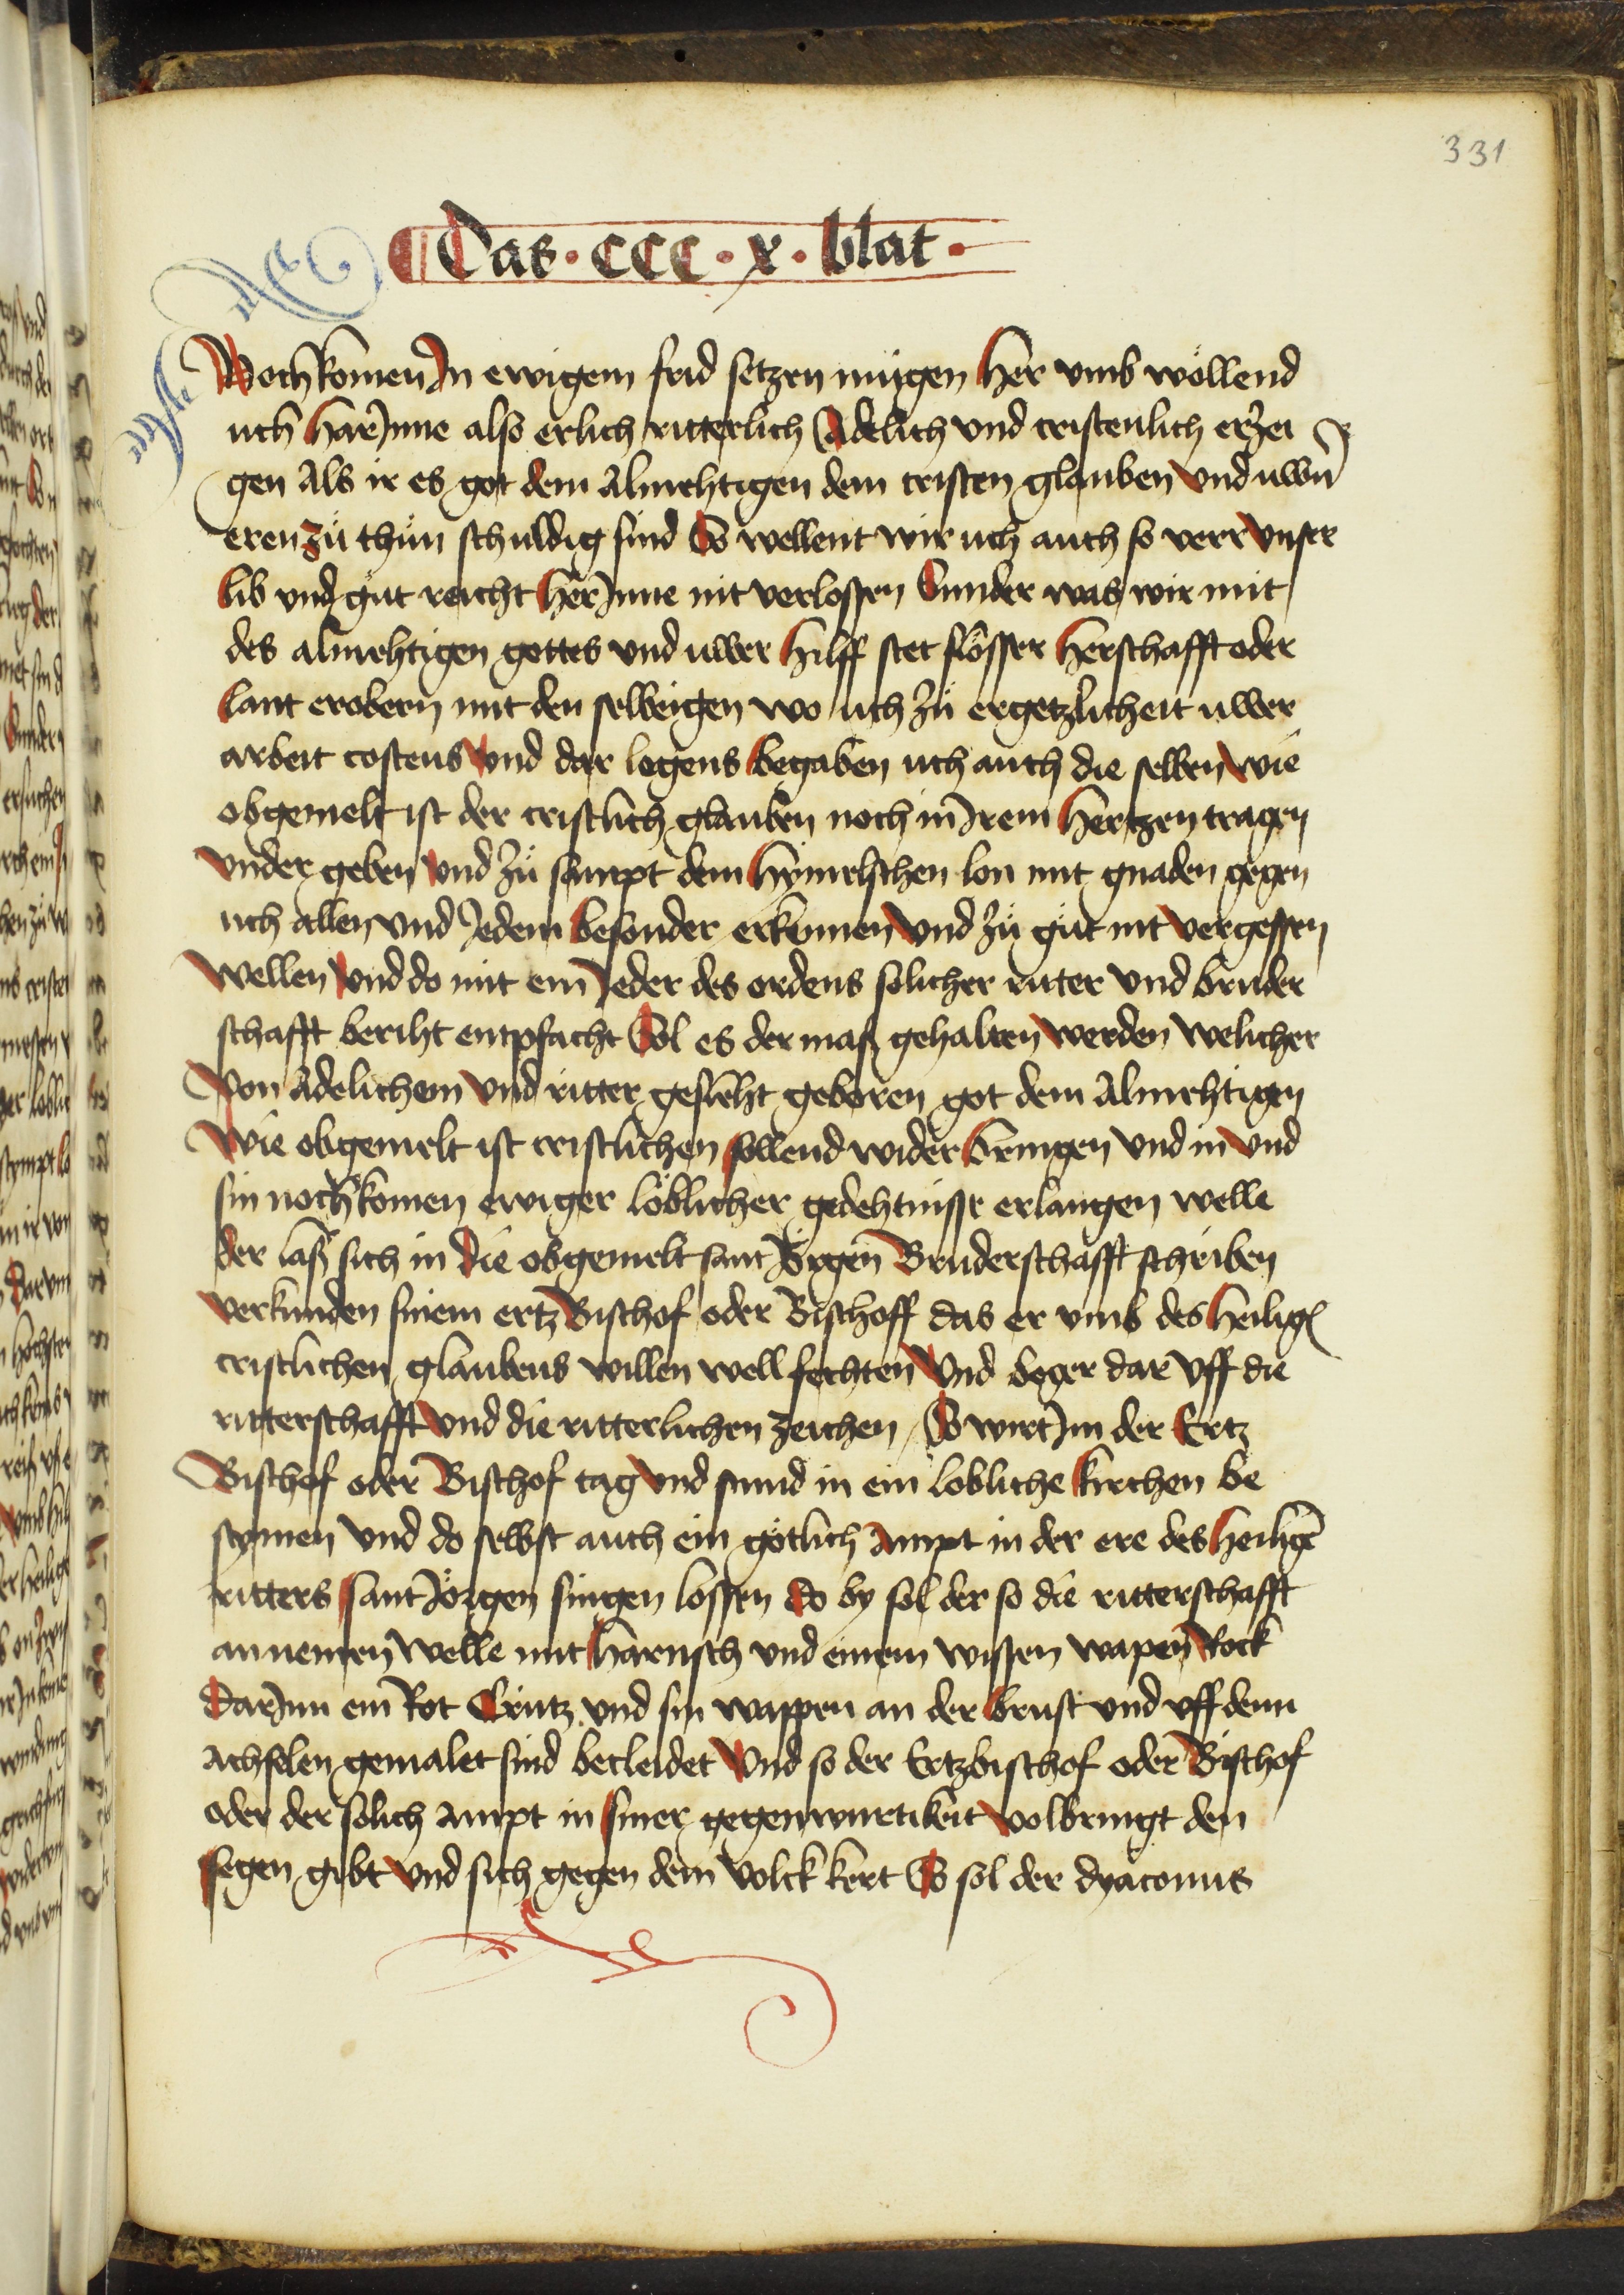 331
Das · ccc · x · blat ·
Nochkomen In ewigem frid setzen mügen Her vmb wöllend
uch Har Inne also erlich ritterlich Adelich vnd cristenlich erzei
gen Als ir es got dem Almehtigen dem cristen glauben Vnd uwn̄
eren zü thün schuldig sind So wellent wir uch auch so verr Vnser
lib vnd güt reicht Her Inne nit verlossen Sunder was wir mit
des almehtigen gottes vnd uwer Hilff stet slösser Herschafft oder
lant erobern mit den selbeigen wo uch zü ergetzlicheit uwer
arbeit costens Vnd dar legens begaben uch auch die selben wie
obgemelt ist der cristlich glauben noch in Irem Hertzen tragen
Vnder geben Vnd zü sampt dem Hymelschen lon mit gnaden gegen
uch allen Vnd Iedem besonder erkennen Vnd zü güt nit vergessen
wellen Vnd do mit ein Ieder des ordens solicher ritter Vnd bruder
schafft beriht entpfacht Sol es der maß gehalten werden welicher
Von Adelichem Vnd ritter gesleht geboren got dem Almehtigen
Wie obgemelt ist cristlichen sollend wider bringen Vnd in Vnd
sin nochkomen ewiger löblicher gedehtnisse erlangen welle
der laß sich in die obgemelt sant Jörgen Bruderschafft schriben
verkunden sinem ertz Bischof oder Bischoff das er vmb des Heilige
cristlichen glaubens willen well fechten Vnd beger dar Vff die
ritterschafft Vnd die ritterlichen zeichen So wirt Im der Ertz
Bischof oder Bischof tag Vnd stund in ein lobliche kirchen be
stymen Vnd do selbst auch ein götlich Ampt in der ere des Heilige
ritters sant Jörgen singen lossen do by sol der so die ritterschafft
annemen welle mit Harnisch vnd einem wissen wapen Rock
dar Inn ein Rot Crütz vnd sin wappen an der brust vnd vff denn
Achselen gemalet sind becleidet Vnd so der Ertzbischof oder Bischof
oder der solich Ampt in siner gegenwurtikeit volbringt den
segen gibt Vnd sich gegen dem Volck kert So sol der dyaconus